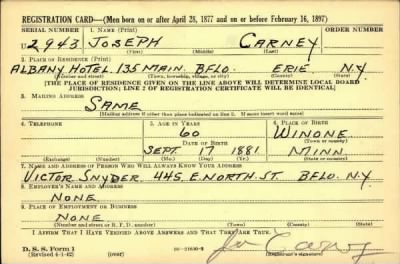 REGISTRATION CARD—(Men born on or after April 28, 1877 and on or before February 16, 1897)
SERIAL NUMBER 1. NAME (Print) ORDER NUMBER
U 2943 JOSEPH CARNEY
(First) (Middle) (Last)
2. PLACE OF RESIDENCE (Print)
ALBANY HOTEL. 135 MAIN. BFLO. ERIE. N.Y.
(Number and street) (Town, township, village, or city) (County) (State)
[THE PLACE OF RESIDENCE GIVEN ON THE LINE ABOVE WILL DETERMINE LOCAL BOARD
JURISDICTION; LINE 2 OF REGISTRATION CERTIFICATE WILL BE IDENTICAL]
3. MAILING ADDRESS
SAME
[Mailing address if other than place indicated on line 2. If same insert word same]
4. TELEPHONE 5. AGE IN YEARS 6. PLACE OF BIRTH
60 WINONE
DATE OF BIRTH (Town or county)
SEPT. 17 1881 MINN.
(Exchange) (Number) (Mo.) (Day) (Yr.) (State or country)
7. NAME AND ADDRESS OF PERSON WHO WILL ALWAYS KNOW YOUR ADDRESS
VICTOR SNYDER 445. E. NORTH. ST. BFLO. N.Y.
8. EMPLOYER'S NAME AND ADDRESS
NONE
9. PLACE OF EMPLOYMENT OR BUSINESS
NONE
(Number and street or R. F. D. number) (Town) (County) (State)
I AFFIRM THAT I HAVE VERIFIED ABOVE ANSWERS AND THAT THEY ARE TRUE.
D. S. S. Form 1
(Revised 4-1-42) (over) 16—21630-2 (Registrant's signature)
Joe Carney